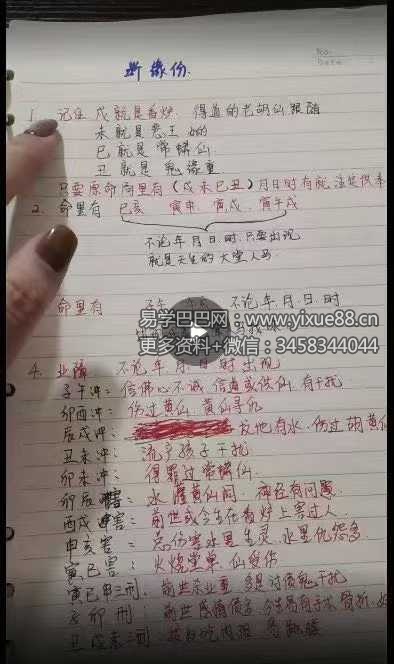 No.
Date
断缘份.
1. 记住 戌就是香炉. 得道的老胡仙跟随
未就是鬼王 如的
巳就是常蟒仙.
丑就是鬼缘重
只要原命局里有(戌未巳丑)月日时有就注定供奉
2. 命里有 巳亥 寅申. 寅戌. 寅午戌
不论年月日时.只要出现
就是天生的大堂人马.
命里有 不论年.月.日.时
易学巴巴网:www.yixue88.cn
更多资料+微信:3458344044
4. 业障 不论年月日时出现
子午冲: 信佛心不诚 信道或供仙.有干扰
卯酉冲: 伤过黄仙 黄仙寻仇
辰戌冲: 有水.伤过胡黄仙
丑未冲: 流了孩子干扰
卯未冲: 得罪过常蟒仙.
卯辰害: 水淹黄仙洞. 神经有问题
酉戌冲害: 前世或今生在香炉上害过人
申亥害= 总伤害水里生灵.水里仇怨多
寅巳害= 火烧堂单 仙受伤
寅巳申三刑. 前世杀业重 多是讨债鬼干扰
卯刑: 前世感情债多
丑戌未三刑: